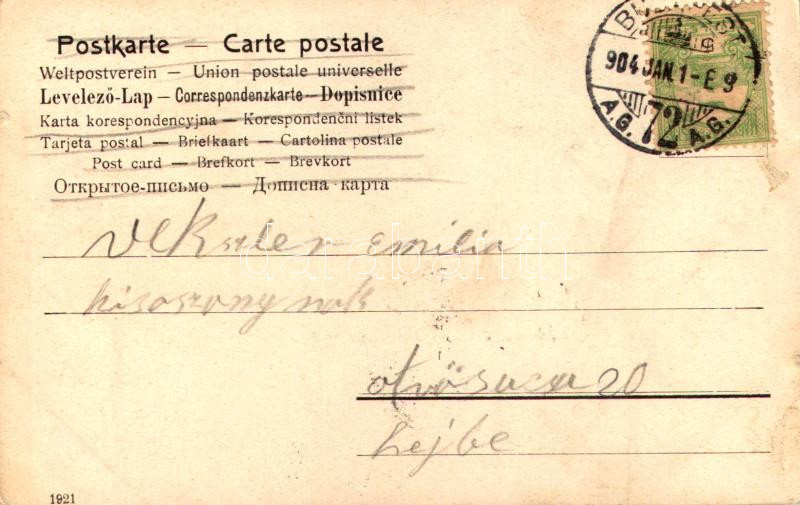 Postkarte — Carte postale
Weltpostverein — Union postale universelle
Levelező-Lap — Correspondenzkarte — Dopisnice
Karta korespondencyjna — Korespondenční listek
Tarjeta postal — Briefkaart — Cartolina postale
Post card — Brefkort — Brevkort
Открытое-письмо — Дописна карта
BUDAPEST
904 JAN. 1 - E 9
A.G. 72 A.G.
Emilia
kisaszonynak
darabanth
20
hejbe
1921